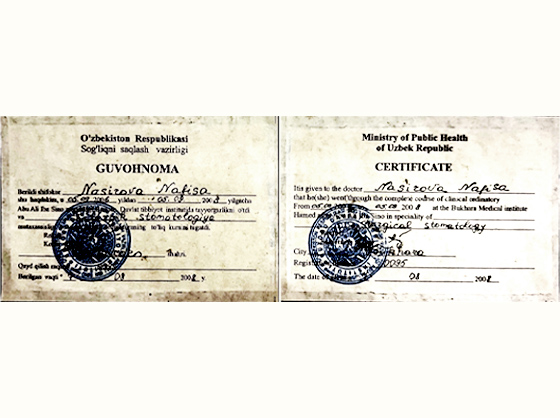 O'zbekiston Respublikasi
Sog'liqni saqlash vazirligi
GUVOHNOMA
Berildi shifokor Nasirova Nafisa
shu haqdakim, u 05.09 2006 yildan 05.09 2008 yilgacha
Abu Ali Ibn Sino Davlat tibbiyot institutida tayyorgarlikni o'tdi
va stomatologiya
to'liq kursini tugatdi.
Qayd qilish
Berilgan vaqti 08 2008 y.
Ministry of Public Health
of Uzbek Republic
CERTIFICATE
It is given to the doctor Nasirova Nafisa
that he(she) went through the complete course of clinical ordinatory
From 05.09 2008 at the Bukhara Medical institute
Hamed in speciality of
surgical stomatology
City Bukhara
0095
The date of 08 2008